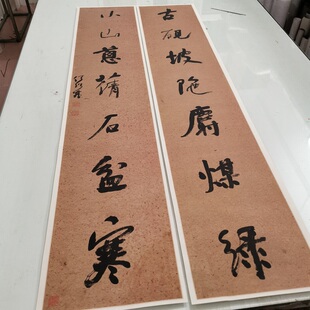 古硯坡陁麝煤綠
小山蔥蒨石盆寒